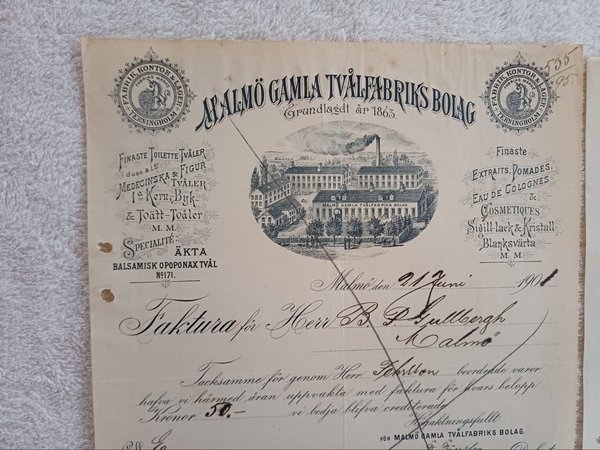 535
95
MALMÖ GAMLA TVÅLFABRIKS BOLAG
Grundlagdt år 1863.
FABRIK, KONTOR & LAGER
TERNINGHOLM
FABRIK, KONTOR & LAGER
TERNINGHOLM
FINASTE TOILETTE TVÅLER
MEDECINSKA & FIGUR
TVÅLER
1a KERN, BYK
& TOATT-TVÅLER
M. M.
SPECIALITÉ:
ÄKTA
BALSAMISK OPOPONAXTVÅL
No 171.
MALMÖ GAMLA TVÅLFABRIKS BOLAG
Finaste
EXTRAITS, POMADES
EAU DE COLOGNES
&
COSMETIQUES
Sigill-lack & Kristall
Blanksvärta
M. M.
Malmö den 21 Juni 1901
Faktura för Herr B. P. Gullbergh
Malmö
Tacksamme för genom Herr beordrade varor
hafva vi härmed äran uppvakta med faktura för hvars belopp
Kronor 50.- vi bedja blifva crediterade
Högaktningsfullt
FÖR MALMÖ GAMLA TVÅLFABRIKS BOLAG.